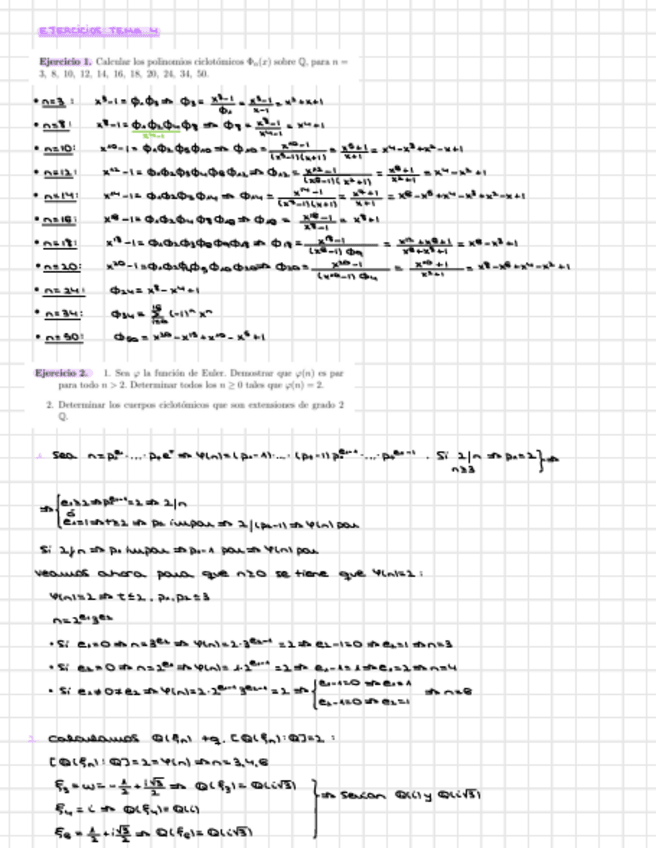 EJERCICIOS TEMA 4
Ejercicio 1. Calcular los polinomios ciclotómicos Φₙ(x) sobre ℚ, para n =
3, 8, 10, 12, 14, 16, 18, 20, 24, 34, 50.
• n=3: x³-1 = Φ₁Φ₃ ⇒ Φ₃ = (x³-1)/Φ₁ = (x³-1)/(x-1) = x²+x+1
• n=8: x⁸-1 = Φ₁Φ₂Φ₄Φ₈ ⇒ Φ₈ = (x⁸-1)/(x⁴-1) = x⁴+1
x⁴-1
• n=10: x¹⁰-1 = Φ₁Φ₂Φ₅Φ₁₀ ⇒ Φ₁₀ = (x¹⁰-1)/((x⁵-1)(x+1)) = (x⁵+1)/(x+1) = x⁴-x³+x²-x+1
• n=12: x¹²-1 = Φ₁Φ₂Φ₃Φ₄Φ₆Φ₁₂ ⇒ Φ₁₂ = (x¹²-1)/((x⁶-1)(x²+1)) = (x⁶+1)/(x²+1) = x⁴-x²+1
• n=14: x¹⁴-1 = Φ₁Φ₂Φ₇Φ₁₄ ⇒ Φ₁₄ = (x¹⁴-1)/((x⁷-1)(x+1)) = (x⁷+1)/(x+1) = x⁶-x⁵+x⁴-x³+x²-x+1
• n=16: ⇒ Φ₁₆ = (x¹⁶-1)/(x⁸-1) = x⁸+1
• n=18: x¹⁸-1 = Φ₁Φ₂Φ₃Φ₆Φ₉Φ₁₈ ⇒ Φ₁₈ = = x⁶-x³+1
• n=20: x²⁰-1 = Φ₁Φ₂Φ₄Φ₅Φ₁₀Φ₂₀ ⇒ Φ₂₀ = (x²⁰-1)/((x¹⁰-1)Φ₄) = (x¹⁰+1)/(x²+1) = x⁸-x⁶+x⁴-x²+1
• n=24: Φ₂₄ = x⁸-x⁴+1
• n=34: Φ₃₄ = Σ (-1)ⁿ xⁿ
• n=50: Φ₅₀ = x²⁰-x¹⁵+x¹⁰-x⁵+1
Ejercicio 2. 1. Sea φ la función de Euler. Demostrar que φ(n) es par
para todo n > 2. Determinar todos los n ≥ 0 tales que φ(n) = 2.
2. Determinar los cuerpos ciclotómicos que son extensiones de grado 2
ℚ.
1. Sea n= ⇒ φ(n)=(p₁-1)·...· . Si 2/n ⇒ p₁=2 } ⇒
n≥3
ó
⇒ φ(n) par
Si 2∤n ⇒ p₁ impar ⇒ p₁-1 par ⇒ φ(n) par
Veamos ahora para que n≥0 se tiene que φ(n)=2:
φ(n)=2 ⇒ t≤2, p₁,p₂≤3
n=2^e₁3^e₂
• Si e₁=0 ⇒ n=3^e₂ ⇒ φ(n)=2·3^(e₂-1) =2 ⇒ e₂-1=0 ⇒ e₂=1 ⇒ n=3
• Si e₂=0 ⇒ n=2^e₁ ⇒ φ(n)=1·2^(e₁-1) =2 ⇒ e₁-1=1 ⇒ e₁=2 ⇒ n=4
• Si e₁≠0≠e₂ ⇒ φ(n)=2·2^(e₁-1)3^(e₂-1) =2 ⇒ { e₁-1=0 ⇒ e₁=1 ⇒ n=6
e₂-1=0 ⇒ e₂=1
2. Calculamos ℚ(ξₙ) tq. [ℚ(ξₙ):ℚ]=2:
[ℚ(ξₙ):ℚ]=2=φ(n) ⇒ n=3,4,6
ξ₃=ω=-1/2+i√3/2 ⇒ ℚ(ξ₃)=ℚ(i√3)
ξ₄=i ⇒ ℚ(ξ₄)=ℚ(i) } ⇒ Serían ℚ(i) y ℚ(i√3)
ξ₆=1/2+i√3/2 ⇒ ℚ(ξ₆)=ℚ(i√3)